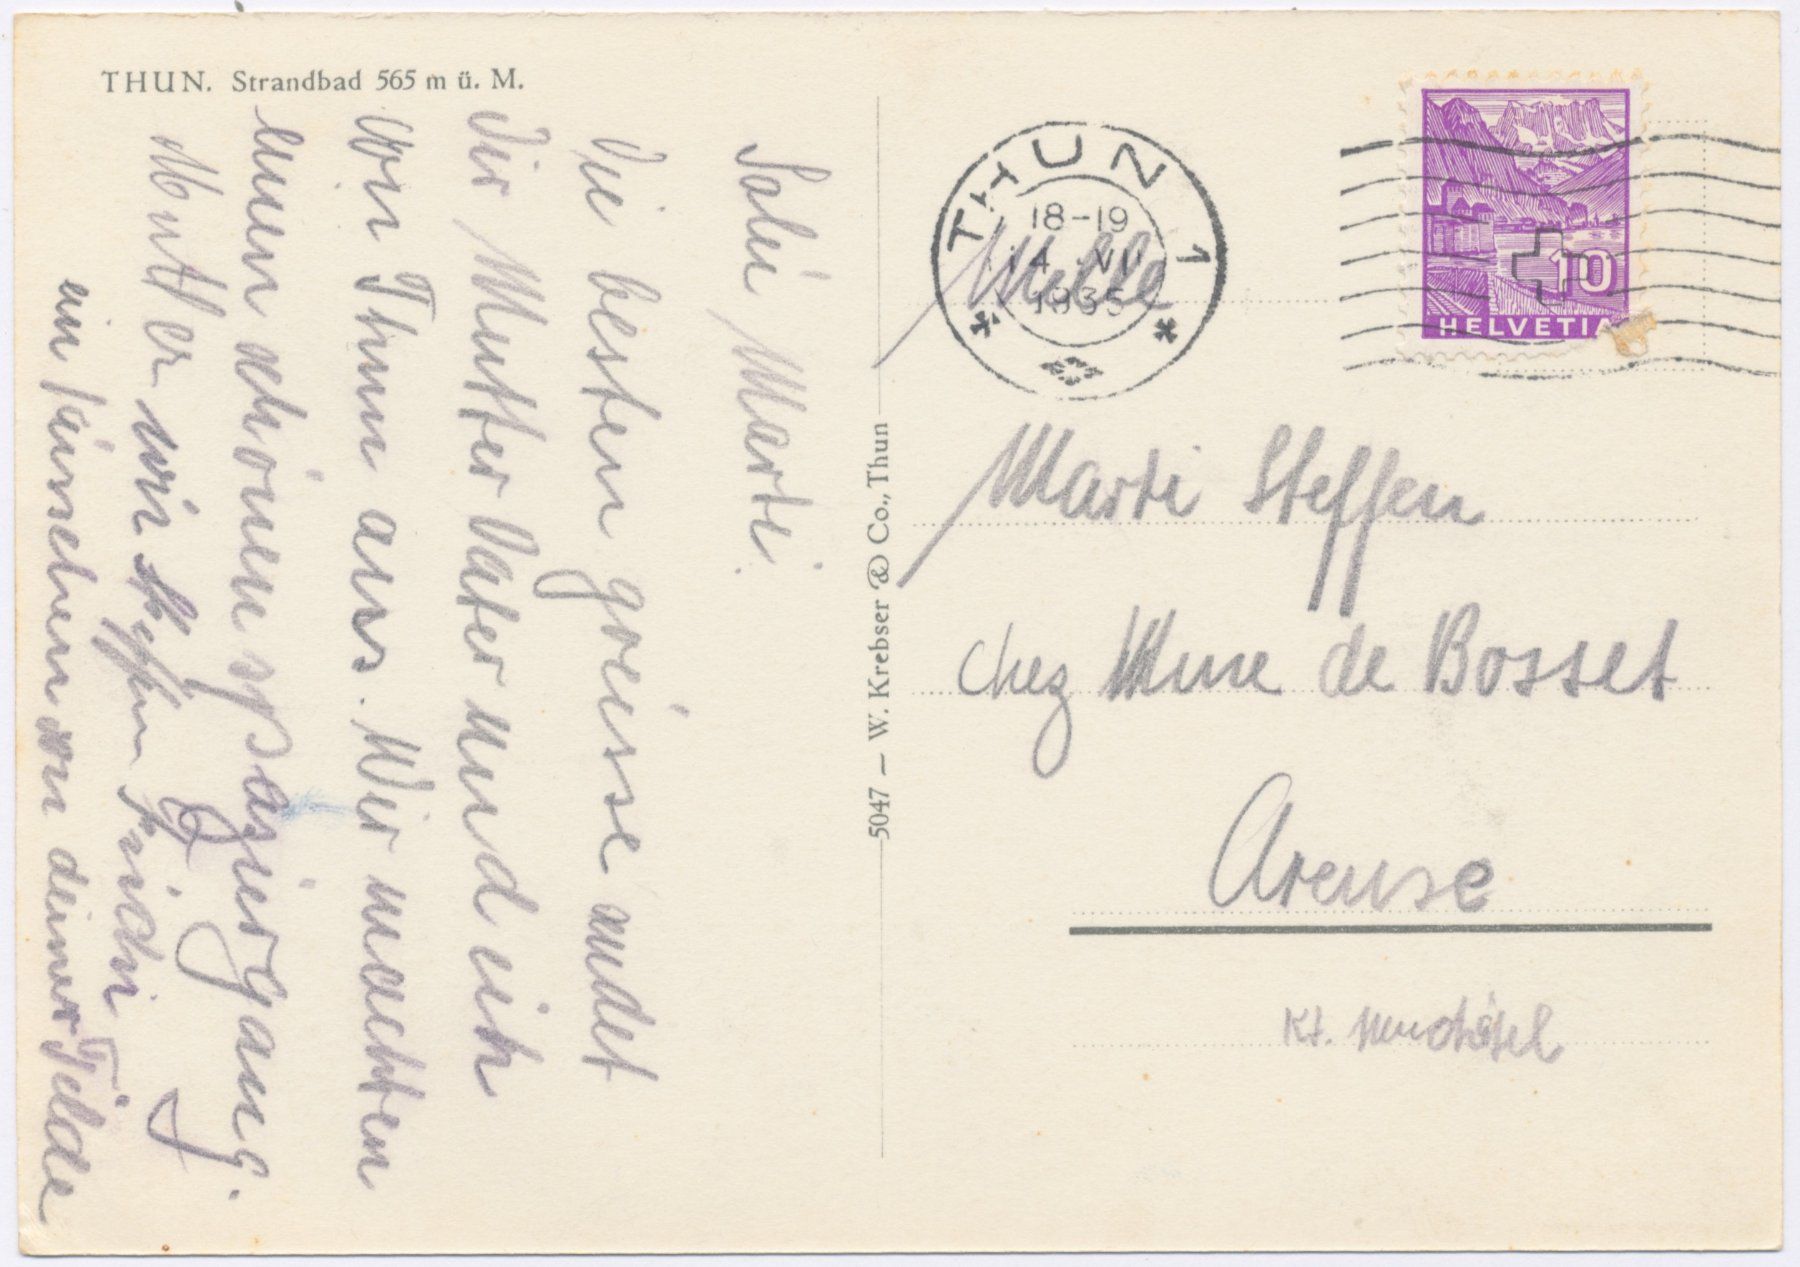 THUN. Strandbad 565 m ü. M.
Salü Marti.
Die besten grüsse endet
Dir Mutter Vater und ich
von Thun aus. Wir machten
einen schönen spaziergang.
Mutter
ein küsschen von deiner Tilde
5047 — W. Krebser & Co., Thun
THUN 1
18-19
14. VII
1935
HELVETIA
10
Mlle
Marti Steffen
chez Mme de Bosset
Areuse
Kt. Neuchâtel